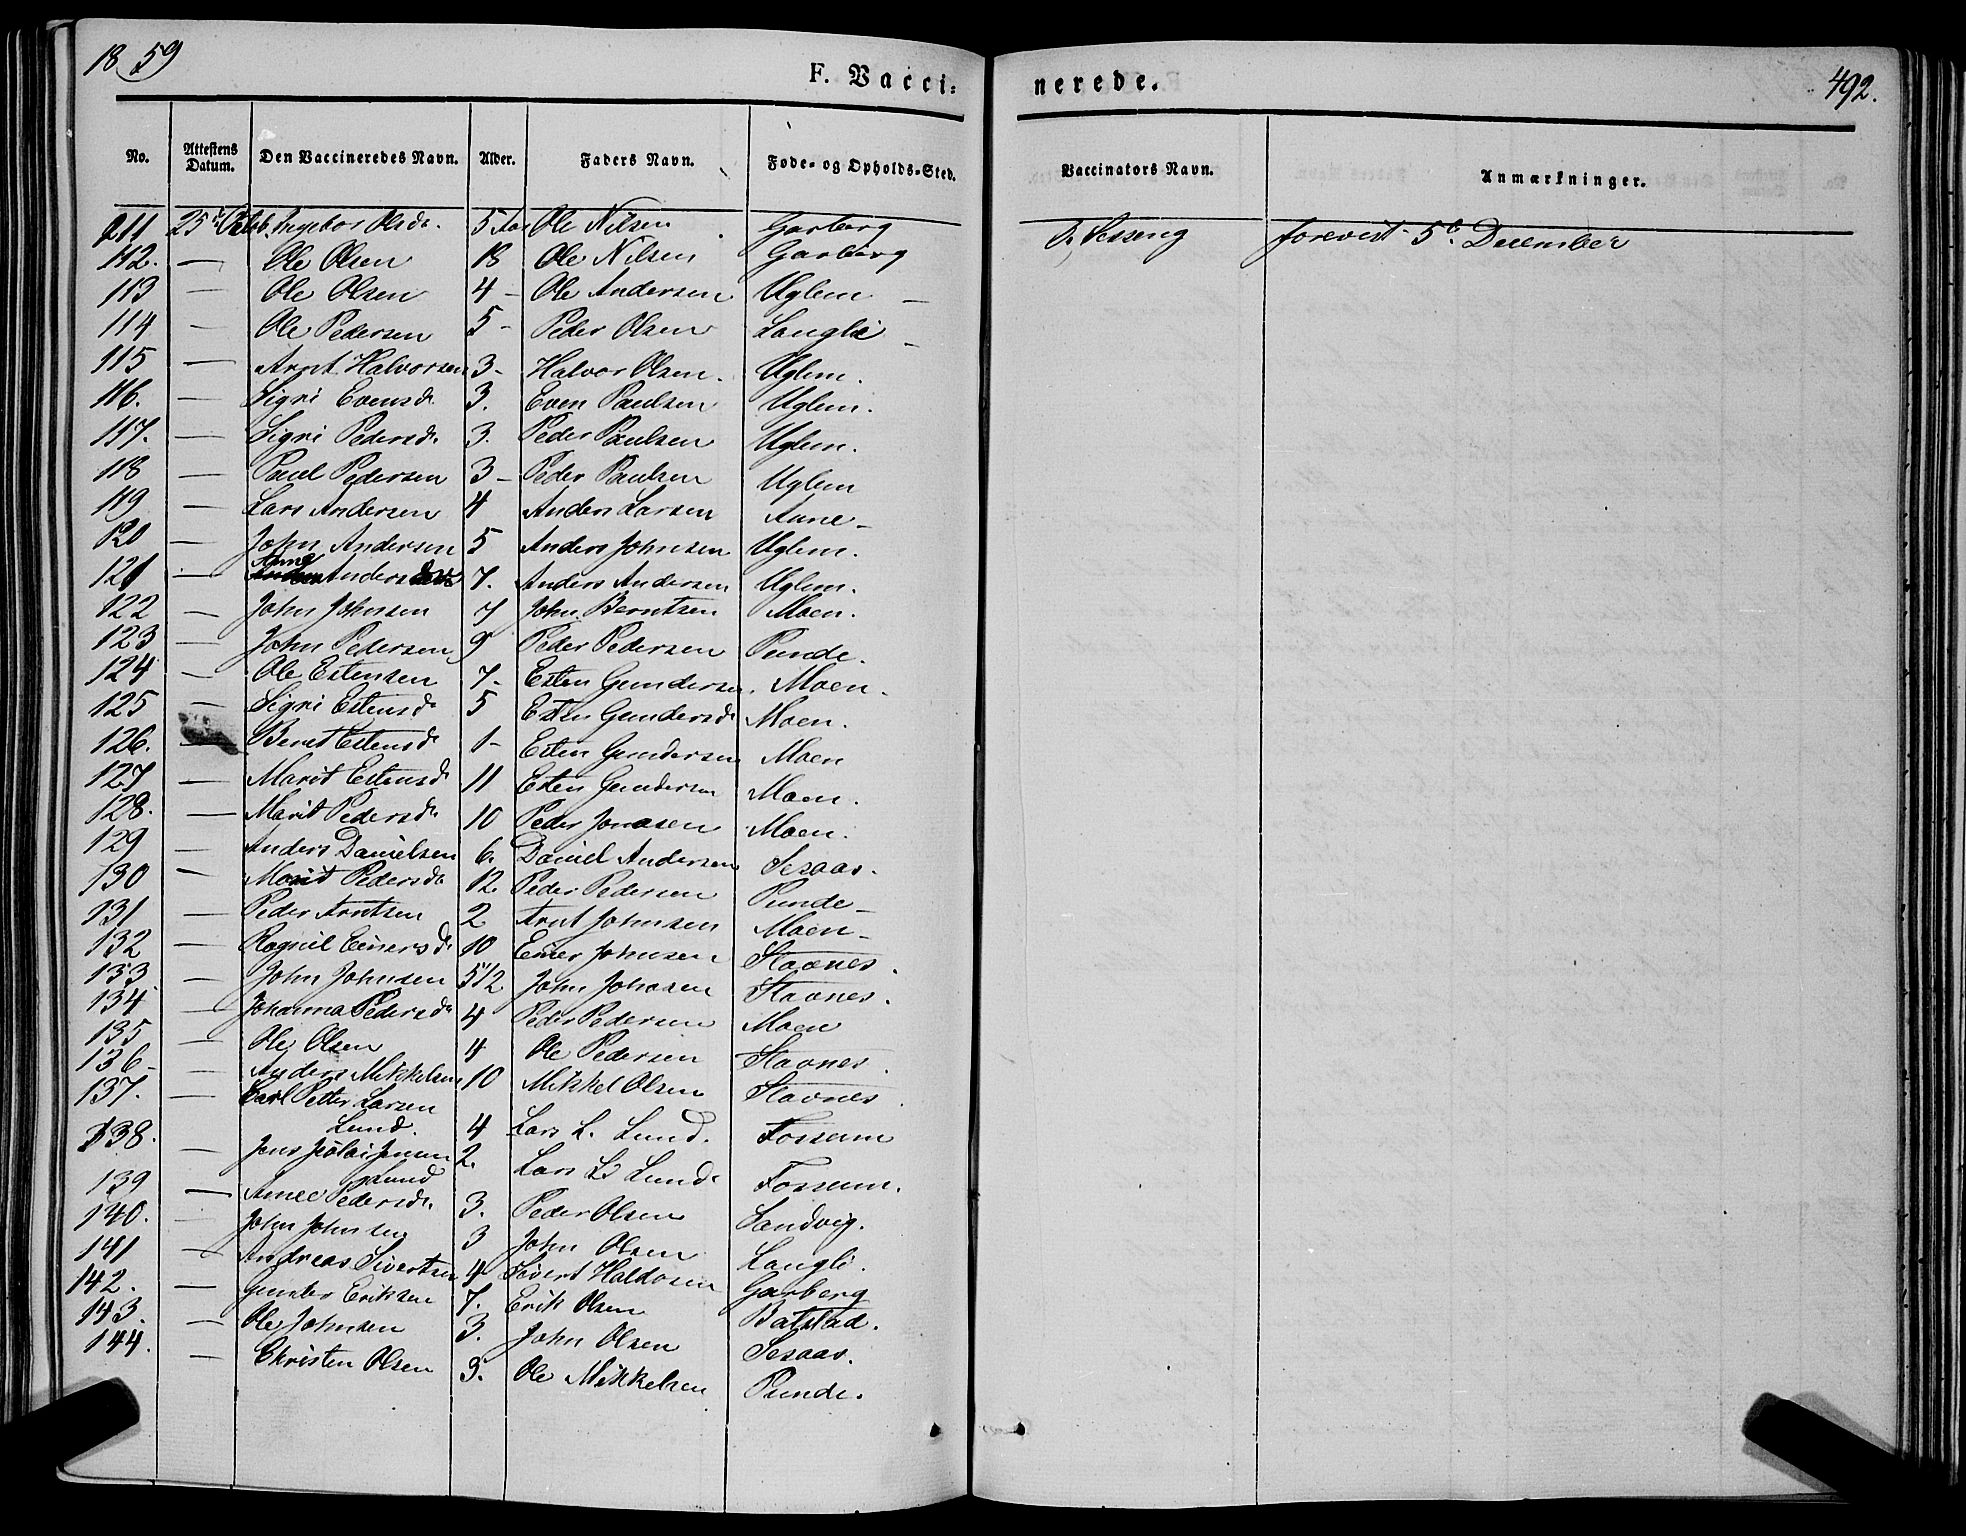 18 59
F. Vacci= nerede.
492.
No. Attestens Datum. Den Vaccineredes Navn. Alder. Faders Navn. Fode= og Opholds=Sted. Vaccinators Navn. Anmærkninger.
111 25 Octob. Ingebor Olsd. 5 Aar Ole Nilsen Garberg forevist 5t December
112. — Ole Olsen 18 Ole Nilsen Garberg
113 — Ole Olsen 4 – Ole Andersen Uglem –
114 — Ole Pedersen 5 – Peder Olsen Langlie –
115 — Arnt Halvorsen 3 – Halvor Olsen. Uglem.
116. — Sigri Evensd. 3. Even Paulsen Uglem.
117. — Sigri Pedersd. 3. Peder Paulsen Uglem.
118 — Paul Pedersen 3 – Peder Paulsen Uglem
119 — Lars Andersen 4 Anders Larsen Aune –
120 — John Andersen 5 Anders Johnsen Uglem.
121 — Anne Anders 7. Anders Andersen Uglem.
122 — John Johnsen 7 John Berntsen Moen.
123 — John Pedersen 9 Peder Pedersen Runde.
124 — Ole Estensen 7 – Esten Gundersen. Moen.
125 — Sigri Estensd. 5 Esten Gundersd. Moen.
126. — Beret Estensd. 1 – Esten Gundersen Moen
127 — Marit Estensd. 11 Esten Gundersen Moen.
128. — Marit Pedersd. 10 Peder Jonasen Moen.
129 — Anders Danielsen 6. Daniel Andersen Sesaas.
130 — Marit Pedersd. 12. Peder Pedersen Runde –
131 — Peder Arntsen 2. Arnt Johnsen Moen –
132 — Ragnil Einersd. 10 Einer Johnsen Stavnes.
133 — John Johnsen 5 1/2 John Johnsen Stavnes.
134 — Johanna Pedersd. 4 Peder Pedersen Moen
135 — Ole Olsen 4 Ole Pedersen Stavnes.
136 – — Anders Mikkelsen 10 Mikkel Olsen Stavnes.
137. — Carl Petter Larsen
Lund. 4 Lars L. Lund. Fossum
138. — Jens 2. Lars L. Lund. Fossum.
Lund
139 — Anne Pedersd. 3. Peder Olsen Sandvig.
140. — John Johnsen 3 John Olsen Langli.
141 — Andreas Sivertsen 4 Sivert Haldosen Garberg
142. — Gunder Eriksen 7. Erik Olsen Batstad.
143. — Ole Johnsen 3. John Olsen Sesaas.
144. — Christen Olsen 3. Ole Mikkelsen Runde.